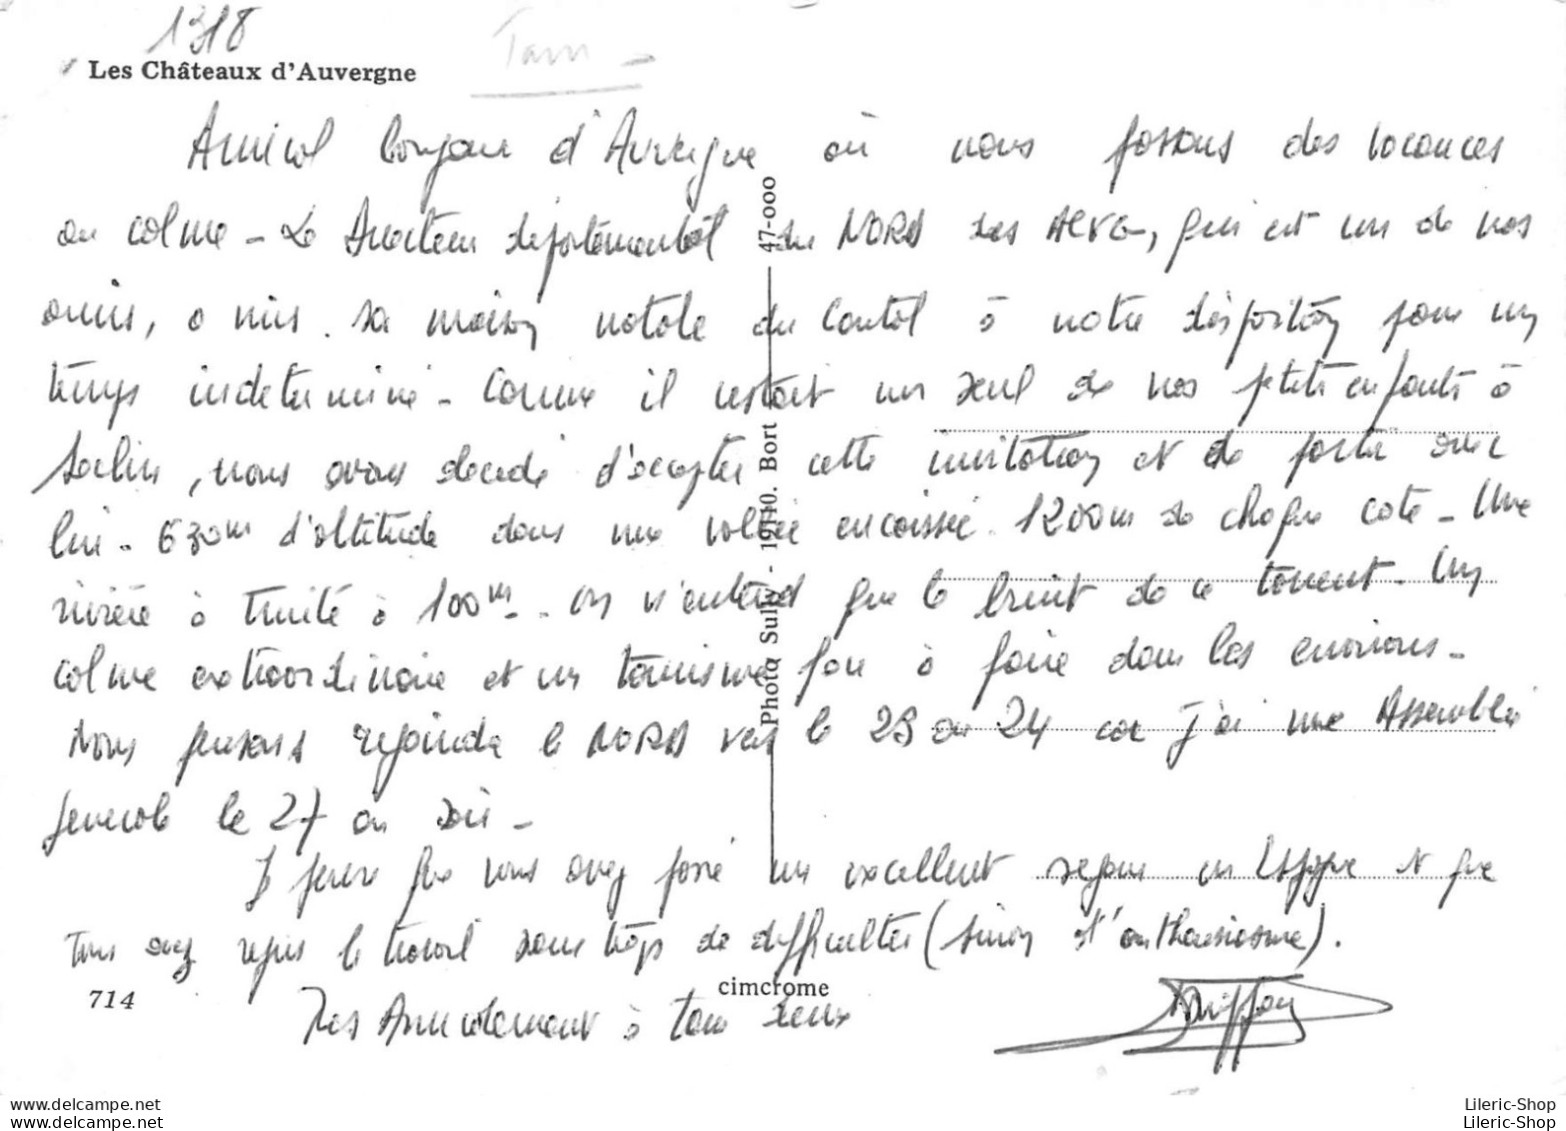 1318
Tam -
Les Châteaux d'Auvergne
Amical bonjour d'Auvergne où nous passons des vacances
au calme - Le Directeur départemental du NORD des , qui est un de nos
amis, a mis sa maison natale du Cantal à notre disposition pour un
temps indeterminé - Comme il restait un seul de nos petits enfants à
Seclin, nous avons decidé d'accepter cette invitation et de partir avec
lui - 630m d'altitude dans une vallée encaissée 1200m de chaque coté - Une
rivière à truite à 100m - on n'entend que le bruit de ce torrent - Un
calme extraordinaire et un tourisme fou à faire dans les environs -
Nous pensons rejoindre le NORD vers le 23 ou 24 car j'ai une Assemblée
generale le 27 au soir -
J'espere que vous avez passé un excellent sejour en et que
tous avez repris le travail sans trop de difficultés (sinon d'enthousiasme).
Très Amicalement à tous deux
Photo Sully - 19110. Bort 47-000
714
cimcrome
Lileric-shop delcampe.com
Lileric-shop delcampe.com
Lileric-Shop
Lileric-Shop